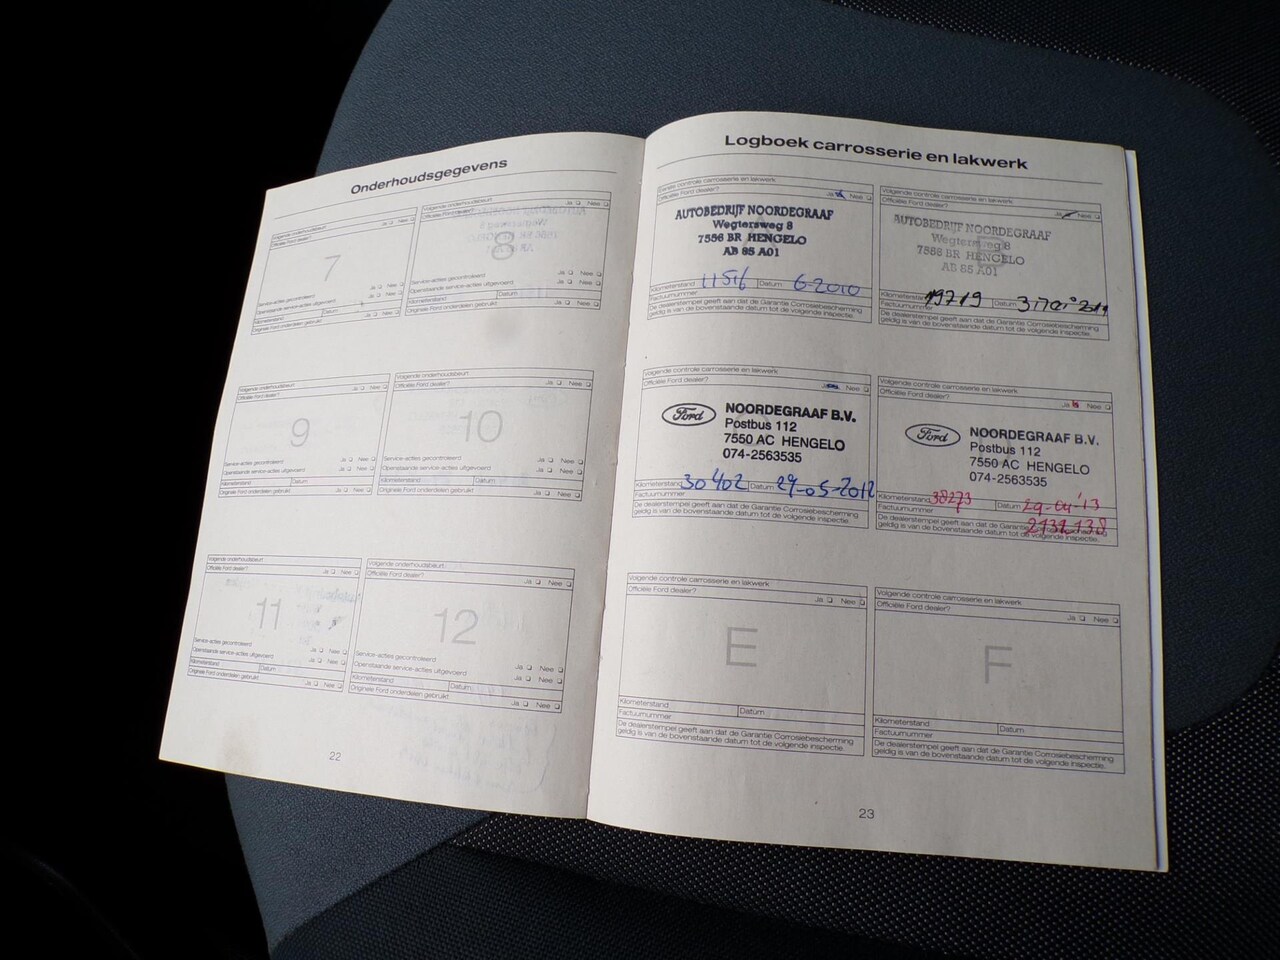 Onderhoudsgegevens
Volgende onderhoudsbeurt
Officiële Ford dealer? Ja Nee
7
Service-acties gecontroleerd Ja Nee
Openstaande service-acties uitgevoerd Ja Nee
Kilometerstand Datum
Originele Ford onderdelen gebruikt Ja Nee
Volgende onderhoudsbeurt
Officiële Ford dealer? Ja Nee
8
Service-acties gecontroleerd Ja Nee
Openstaande service-acties uitgevoerd Ja Nee
Kilometerstand Datum
Originele Ford onderdelen gebruikt Ja Nee
Volgende onderhoudsbeurt
Officiële Ford dealer? Ja Nee
9
Service-acties gecontroleerd Ja Nee
Openstaande service-acties uitgevoerd Ja Nee
Kilometerstand Datum
Originele Ford onderdelen gebruikt Ja Nee
Volgende onderhoudsbeurt
Officiële Ford dealer? Ja Nee
10
Service-acties gecontroleerd Ja Nee
Openstaande service-acties uitgevoerd Ja Nee
Kilometerstand Datum
Originele Ford onderdelen gebruikt Ja Nee
Volgende onderhoudsbeurt
Officiële Ford dealer? Ja Nee
11
Service-acties gecontroleerd Ja Nee
Openstaande service-acties uitgevoerd Ja Nee
Kilometerstand Datum
Originele Ford onderdelen gebruikt Ja Nee
Volgende onderhoudsbeurt
Officiële Ford dealer? Ja Nee
12
Service-acties gecontroleerd Ja Nee
Openstaande service-acties uitgevoerd Ja Nee
Kilometerstand Datum
Originele Ford onderdelen gebruikt Ja Nee
22
Logboek carrosserie en lakwerk
Eerste controle carrosserie en lakwerk
Officiële Ford dealer? Ja Nee
AUTOBEDRIJF NOORDEGRAAF
Wegtersweg 8
7556 BR HENGELO
AB 85 A01
Kilometerstand 11516 Datum 6-2010
Factuurnummer
De dealerstempel geeft aan dat de Garantie Corrosiebescherming
geldig is van bovenstaande datum tot de volgende inspectie.
Volgende controle carrosserie en lakwerk
Officiële Ford dealer? Ja Nee
AUTOBEDRIJF NOORDEGRAAF
Wegtersweg 8
7556 BR HENGELO
AB 85 A01
Kilometerstand 19719 Datum 3 mei 2011
Factuurnummer
De dealerstempel geeft aan dat de Garantie Corrosiebescherming
geldig is van bovenstaande datum tot de volgende inspectie.
Volgende controle carrosserie en lakwerk
Officiële Ford dealer? Ja Nee
Ford NOORDEGRAAF B.V.
Postbus 112
7550 AC HENGELO
074-2563535
Kilometerstand 30402 Datum 29-05-2012
Factuurnummer
De dealerstempel geeft aan dat de Garantie Corrosiebescherming
geldig is van de bovenstaande datum tot de volgende inspectie.
Volgende controle carrosserie en lakwerk
Officiële Ford dealer? Ja Nee
Ford NOORDEGRAAF B.V.
Postbus 112
7550 AC HENGELO
074-2563535
Kilometerstand 38273 Datum 29-04-'13
Factuurnummer 2132138
De dealerstempel geeft aan dat de Garantie
geldig is van de bovenstaande datum tot de volgende inspectie.
Volgende controle carrosserie en lakwerk
Officiële Ford dealer? Ja Nee
E
Kilometerstand Datum
Factuurnummer
De dealerstempel geeft aan dat de Garantie Corrosiebescherming
geldig is van de bovenstaande datum tot de volgende inspectie.
Volgende controle carrosserie en lakwerk
Officiële Ford dealer? Ja Nee
F
Kilometerstand Datum
Factuurnummer
De dealerstempel geeft aan dat de Garantie Corrosiebescherming
geldig is van de bovenstaande datum tot de volgende inspectie.
23